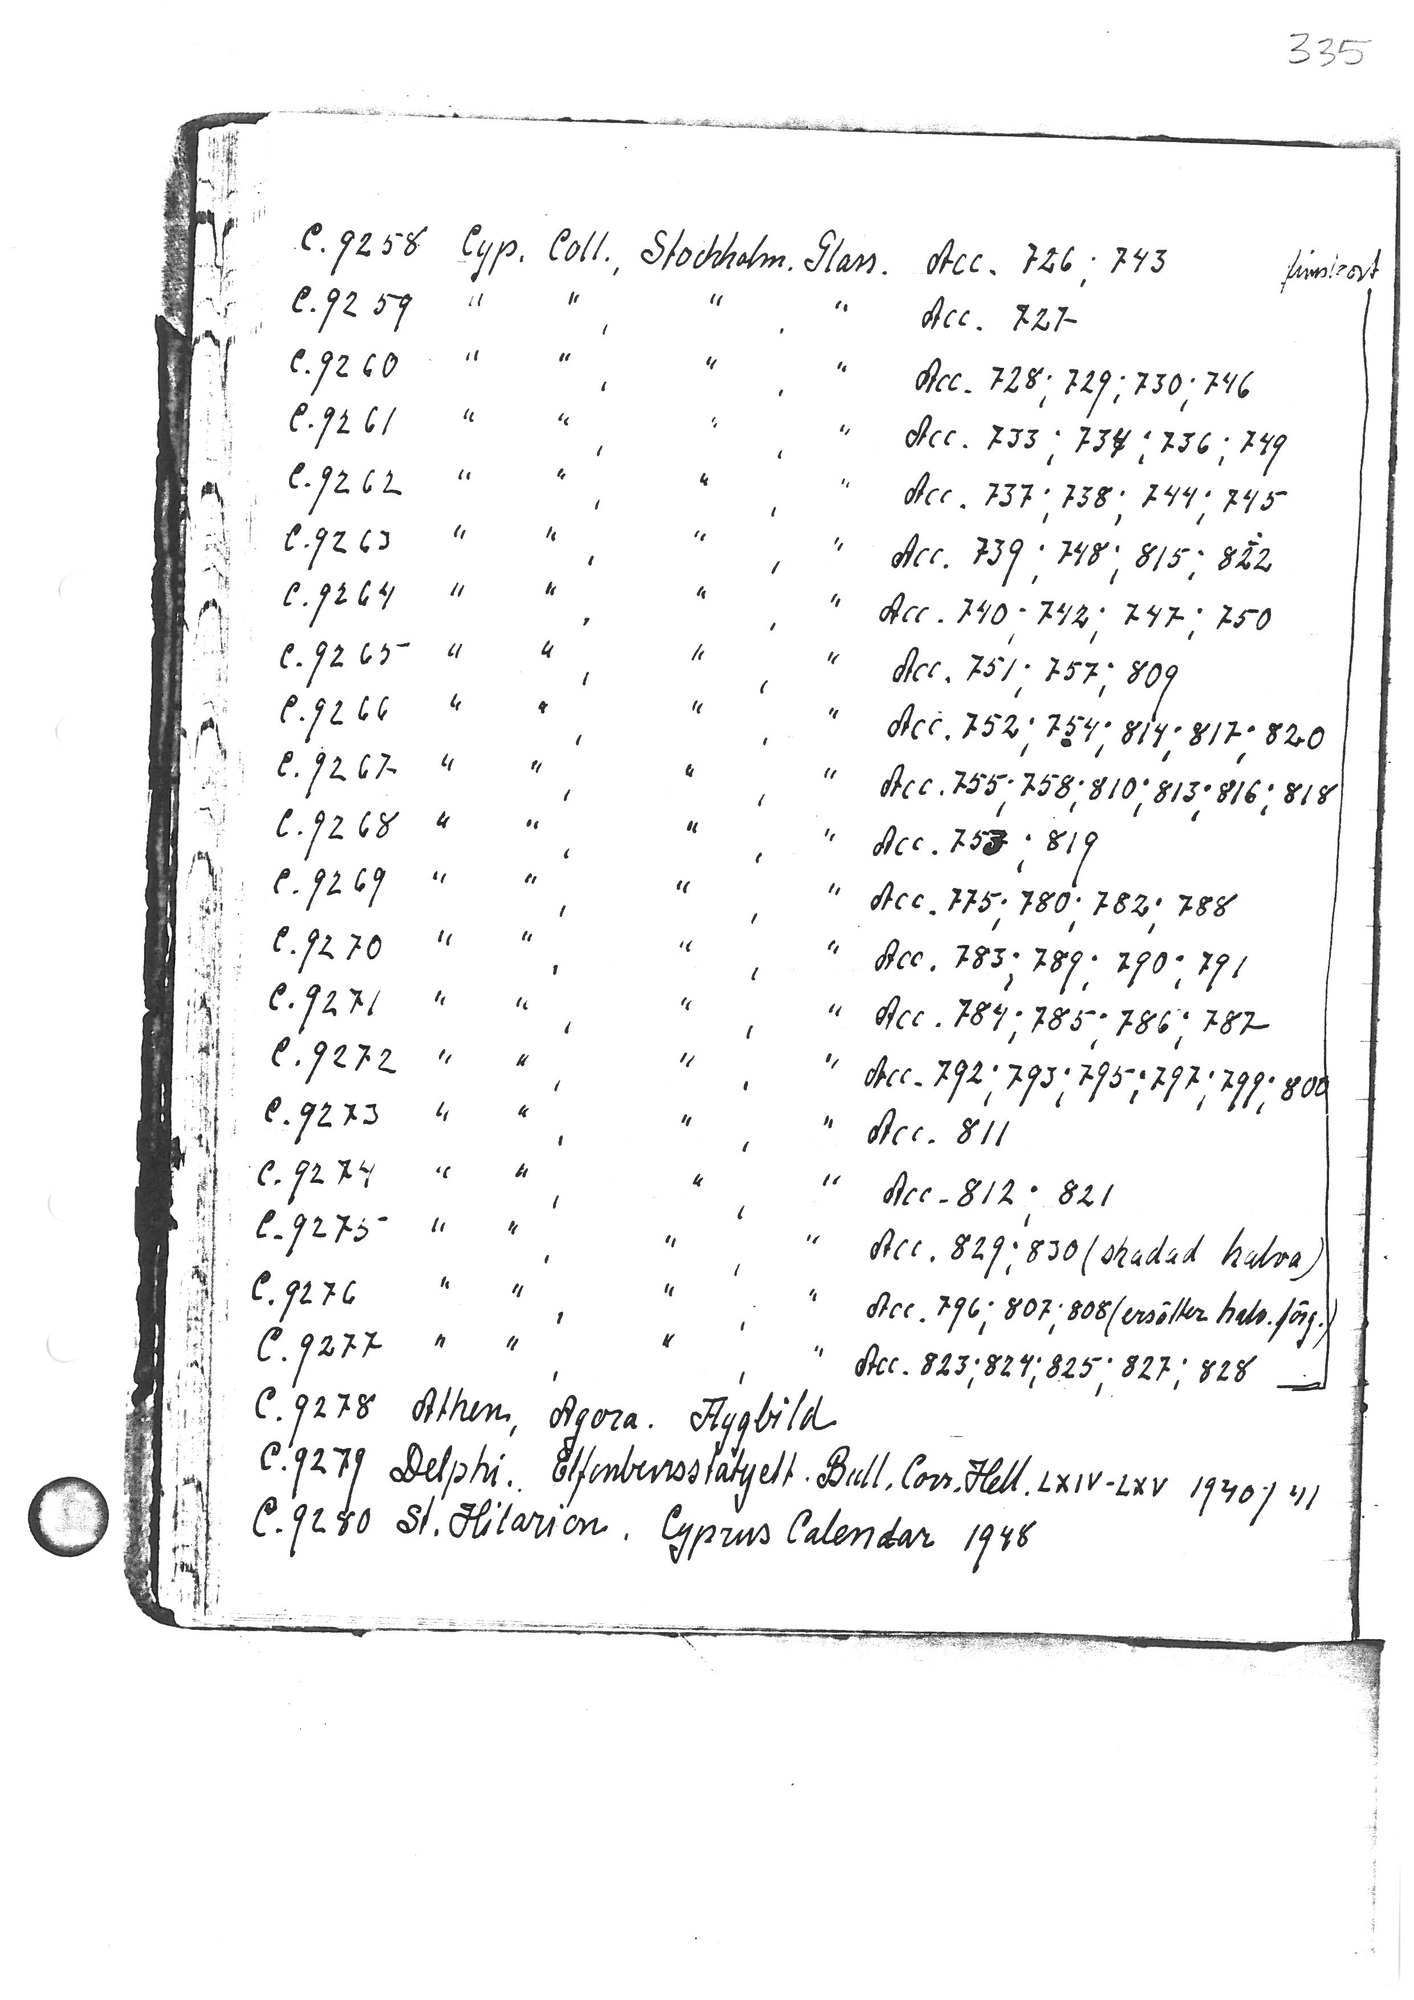 335
C.9258 Cyp. Coll., Stockholm. Glass. Acc. 726; 743
C.9259 " " , " . " Acc. 727
C.9260 " " , " , " Acc. 728; 729; 730; 746
C.9261 " " , " , " Acc. 733; 734; 736; 749
C.9262 " " , " , " Acc. 737; 738; 744; 745
C.9263 " " , " , " Acc. 739; 748; 815; 822
C.9264 " " , " , " Acc. 740; 742; 747; 750
C.9265 " " , " , " Acc. 751; 757; 809
C.9266 " " , " , " Acc. 752; 754; 814; 817; 820
C.9267 " " , " , " Acc. 755; 758; 810; 813; 816; 818
C.9268 " " , " , " Acc. 753; 819
C.9269 " " , " , " Acc. 775; 780; 782; 788
C.9270 " " , " , " Acc. 783; 789; 790; 791
C.9271 " " , " , " Acc. 784; 785; 786; 787
C.9272 " " , " , " Acc. 792; 793; 795; 797; 799; 800
C.9273 " " , " , " Acc. 811
C.9274 " " , " , " Acc. 812; 821
C.9275 " " , " , " Acc. 829; 830 (skadad halva)
C.9276 " " , " , " Acc. 796; 807; 808 (ersätter halv. förg.)
C.9277 " " , " , " Acc. 823; 824; 825; 827; 828
C.9278 Athen, Agora. Flygbild
C.9279 Delphi. Elfenbensstatyett. Bull. Corr. Hell. LXIV-LXV 1940/41
C.9280 St. Hilarion. Cyprus Calendar 1948